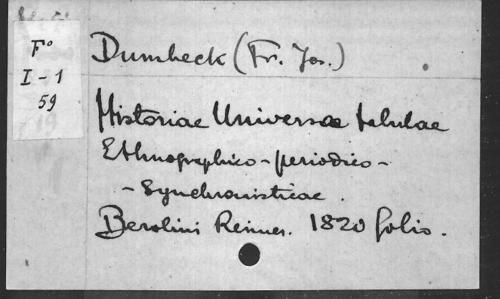 F°
I-1
59
Dumbeck (Fr. Jos.)
Historiae Universae tabulae
Ethnographico-periodico-
-Synchronisticae.
Berolini Reimer. 1820 folio.